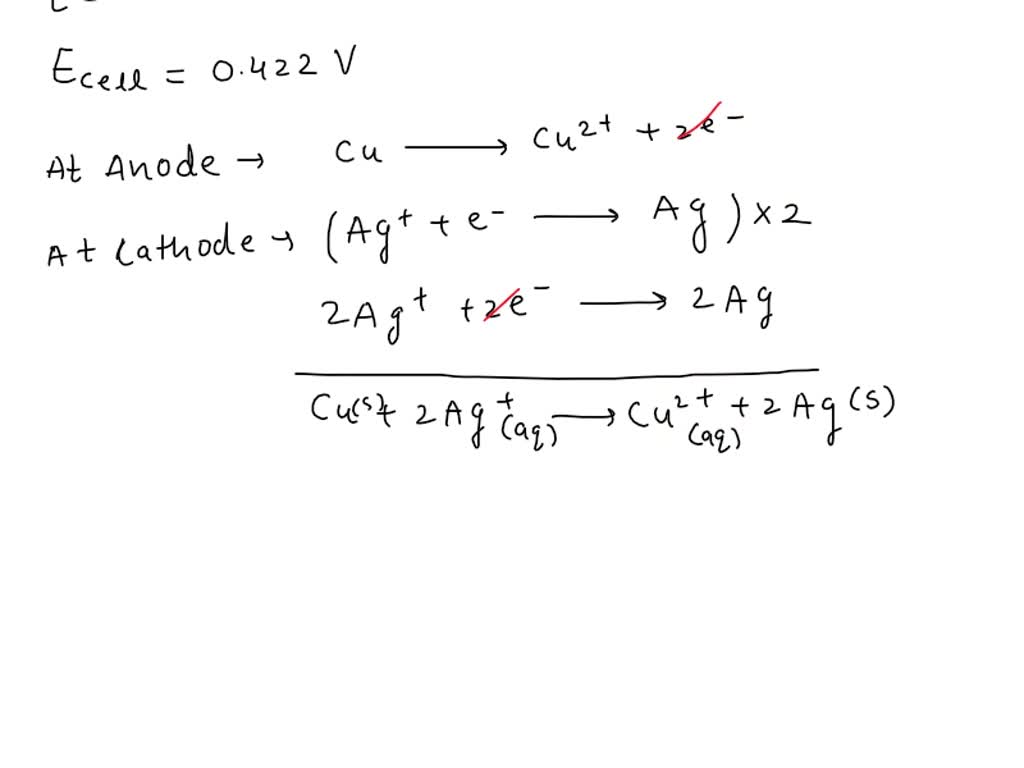 Ecell = 0.422 V
At Anode → Cu ⟶ Cu²⁺ + 2e⁻
At Cathode → (Ag⁺ + e⁻ ⟶ Ag) × 2
2Ag⁺ + 2e⁻ ⟶ 2Ag
Cu(s) + 2Ag⁺(aq) ⟶ Cu²⁺(aq) + 2Ag(s)